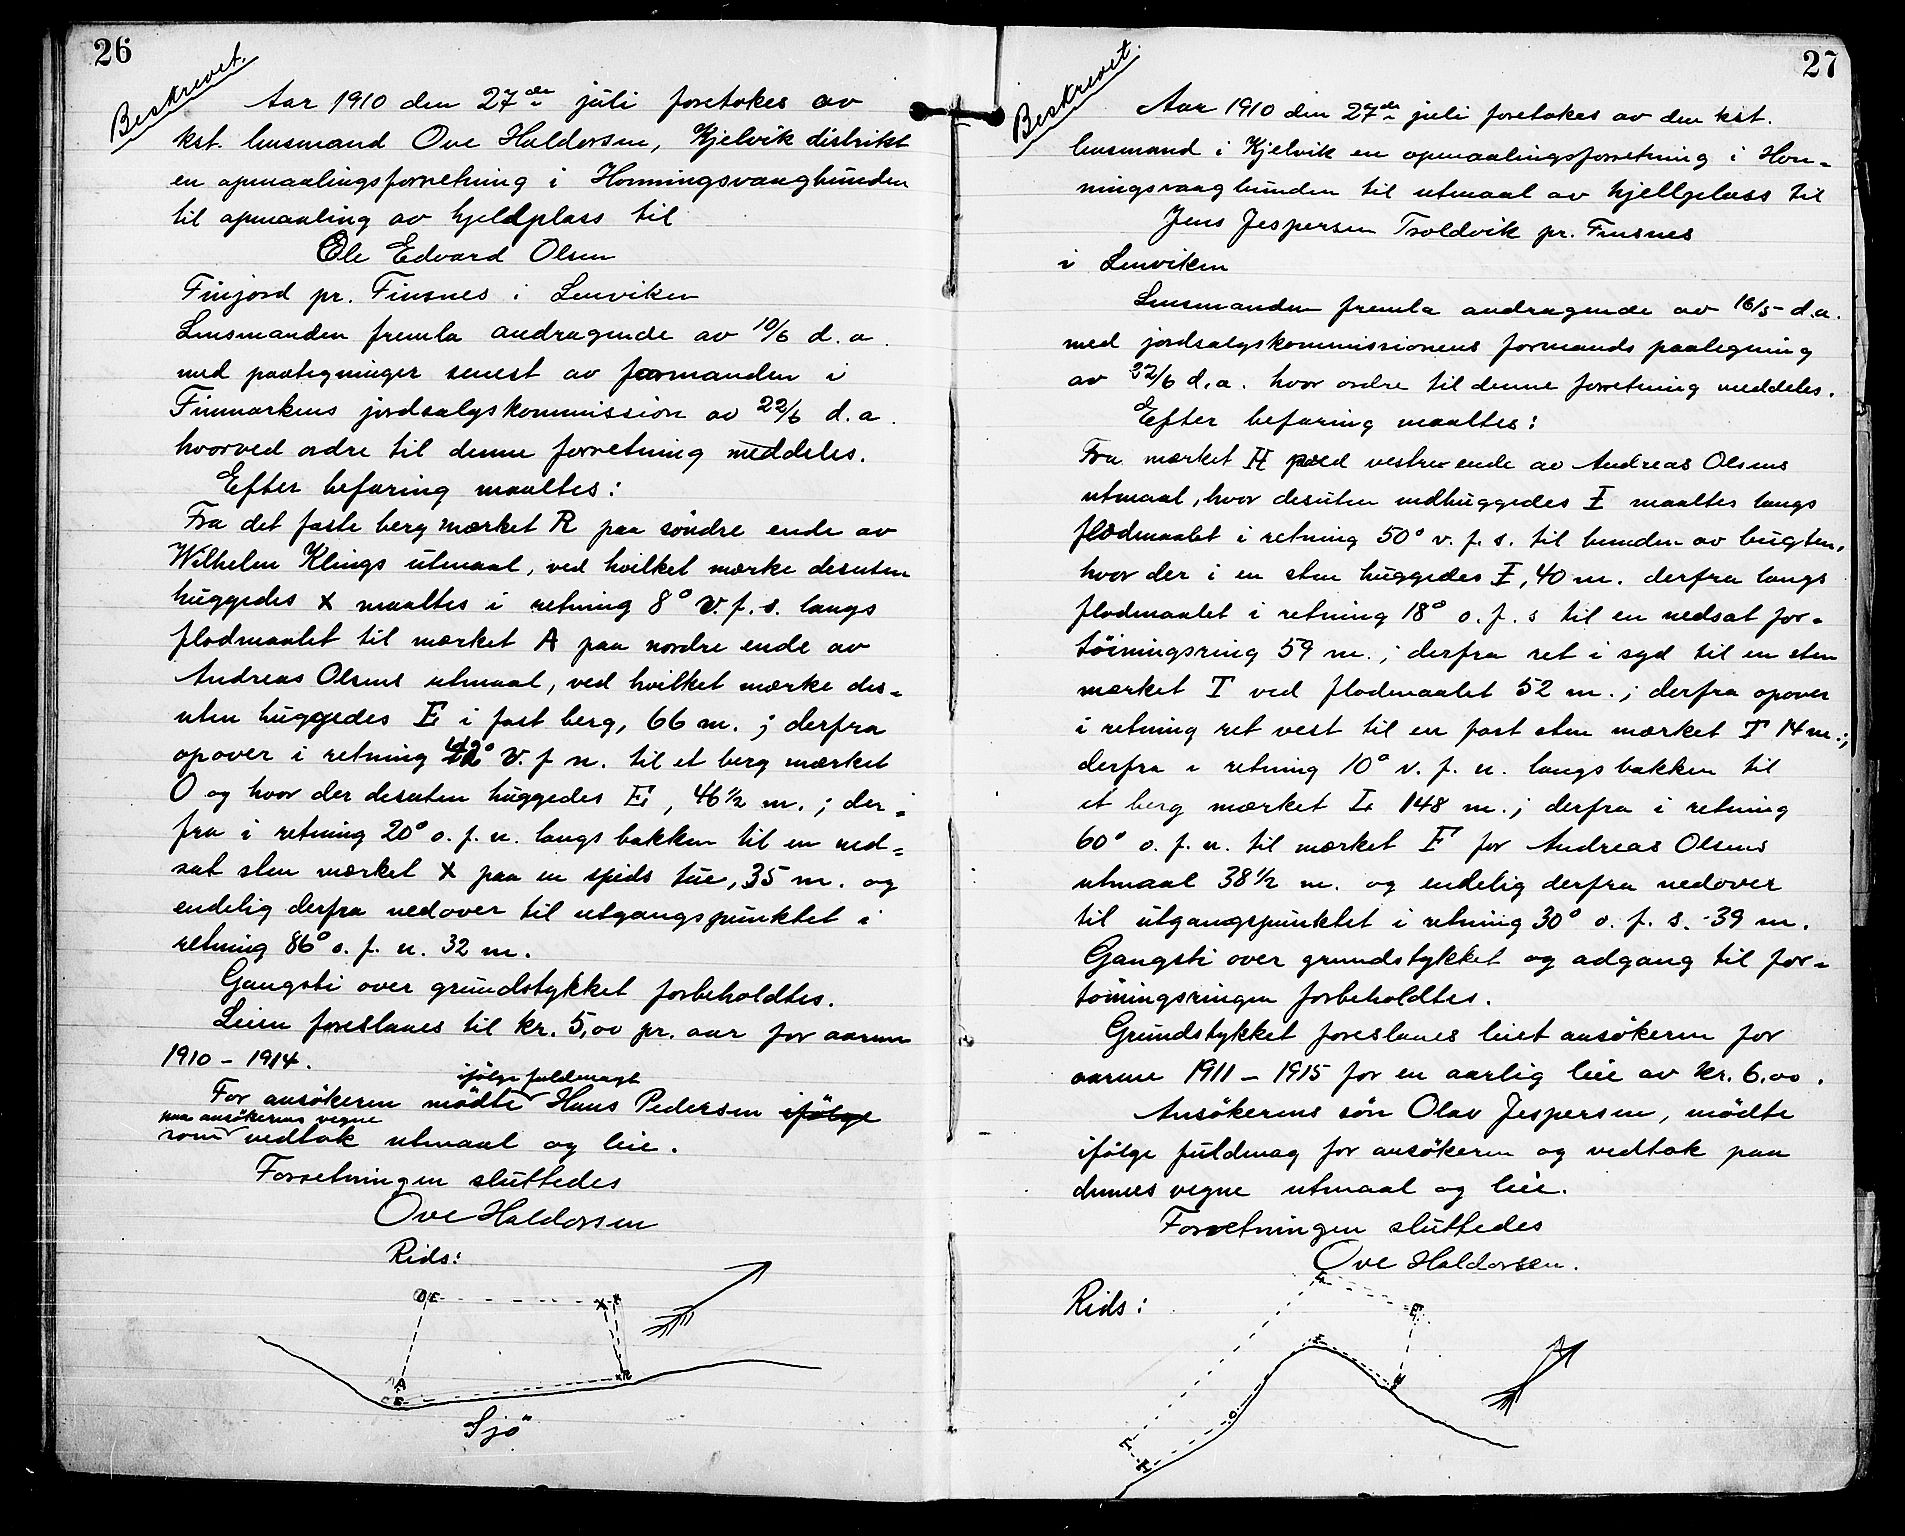 26
Beskrevet.
Aar 1910 den 27de juli foretokes av
kst. lensmand Ove Haldorsen, Kjelvik distrikt
en opmaalingsforretning i Honningsvaagbunden
til opmaaling av hjeldplass til
Ole Edvard Olsen
Finjord pr. Finsnes i Lenviken
Lensmanden fremla andragende av 10/6 d.a.
med paategninger senest av formanden i
Finmarkens jordsalgskommission av 22/6 d.a.
hvorved ordre til denne forretning meddeles.
Efter befaring maaltes:
Fra det faste berg mærket R paa söndre ende av
Wilhelm Klings utmaal, ved hvilket mærke desuten
huggedes X maaltes i retning 8° v. f. s. langs
flodmaalet til mærket A paa nordre ende av
Andreas Olsens utmaal, ved hvilket mærke des-
uten huggedes E i fast berg, 66 m. ; derfra
opover i retning 42° v. f n. til et berg mærket
O og hvor der desuten huggedes E, 46 1/2 m. ; der-
fra i retning 20° o. f. n. langs bakken til en ned-
sat sten mærket X paa en spids tue, 35 m. og
endelig derfra nedover til utgangspunktet i
retning 86° o. f. n. 32 m.
Gangsti over grundstykket forbeholdtes.
Leien foreslaaes til kr. 5,00 pr. aar for aarene
1910 - 1914.
ifölge fuldmagt
For ansökeren mödte Hans Pedersen ifölge
paa ansökerens vegne
som vedtok utmaal og leie.
Forretningen sluttedes
Ove Haldorsen
Rids:
O E X X
A
E
X R
Sjö
27
Beskrevet.
Aar 1910 den 27de juli foretokes av den kst.
lensmand i Kjelvik en opmaalingsforretning i Hon-
ningsvaagbunden til utmaal av hjellplass til
Jens Jespersen Troldvik pr. Finsnes
i Lenviken
Lensmanden fremla andragende av 16/5 - d.a.
med jordsalgskommissionens formands paategning
av 22/6 d.a. hvor ordre til denne forretning meddeles.
Efter befaring maaltes:
Fra mærket H ved vestre ende av Andreas Olsens
utmaal, hvor desuten indhuggedes I maaltes langs
flodmaalet i retning 50° v. f. s. til bunden av bugten,
hvor der i en sten huggedes I, 40 m. derfra langs
flodmaalet i retning 18° o. f. s til en nedsat for-
töiningsring 59 m. ; derfra ret i syd til en sten
mærket I ved flodmaalet 52 m. ; derfra opover
i retning ret vest til en fast sten mærket T 14 m. ;
derfra i retning 10° v. f. n. langs bakken til
et berg mærket L 148 m. ; derfra i retning
60° o. f. n. til mærket F for Andreas Olsens
utmaal 38 1/2 m. og endelig derfra nedover
til utgangspunktet i retning 30° o. f. s. - 39 m.
Gangsti over grundstykket og adgang til for-
töiningsringen forbeholdtes.
Grundstykket foreslaaes leiet ansökeren for
aarene 1911 - 1915 for en aarlig leie av kr. 6.00.
Ansökerens sön Olav Jespersen, mödte
ifölge fuldmag for ansökeren og vedtok paa
dennes vegne utmaal og leie.
Forretningen sluttedes
Ove Haldorsen.
Rids:
F
I
H
O
T
I